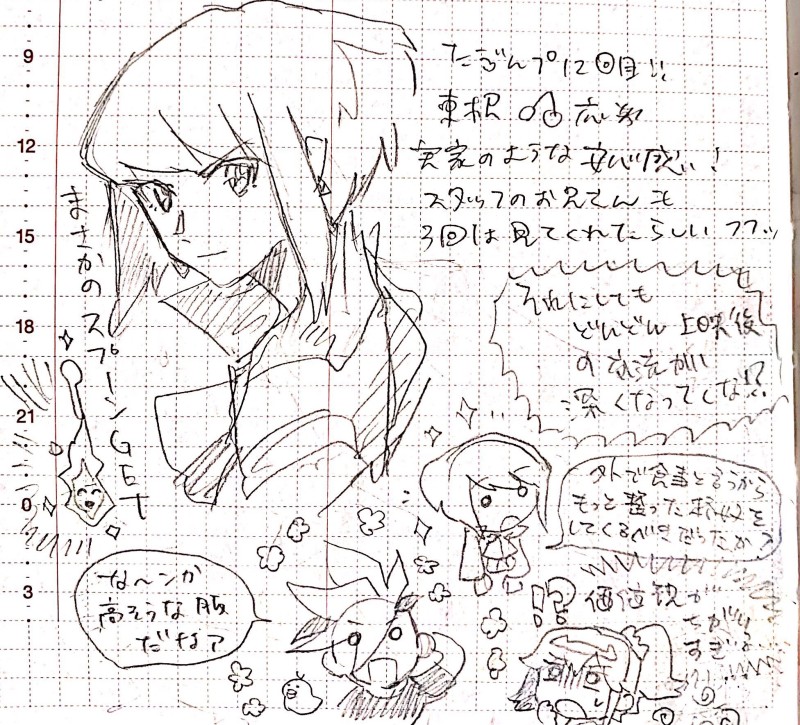 9
12
15
18
21
0
3
たぎんプに2回目!!
東根
実家のような安心感!
スタッフのお兄さんも
3回は見てくれてたらしい フフッ
それにしても
どんどん上映後
の交流が
深くなってくな!?
まさかのスプーンGET
外で食事と言うから
もっと整った格好を
してくるべきだったか?
な〜ンか
高そうな服
だなァ
価値観が
ちがい
すぎる